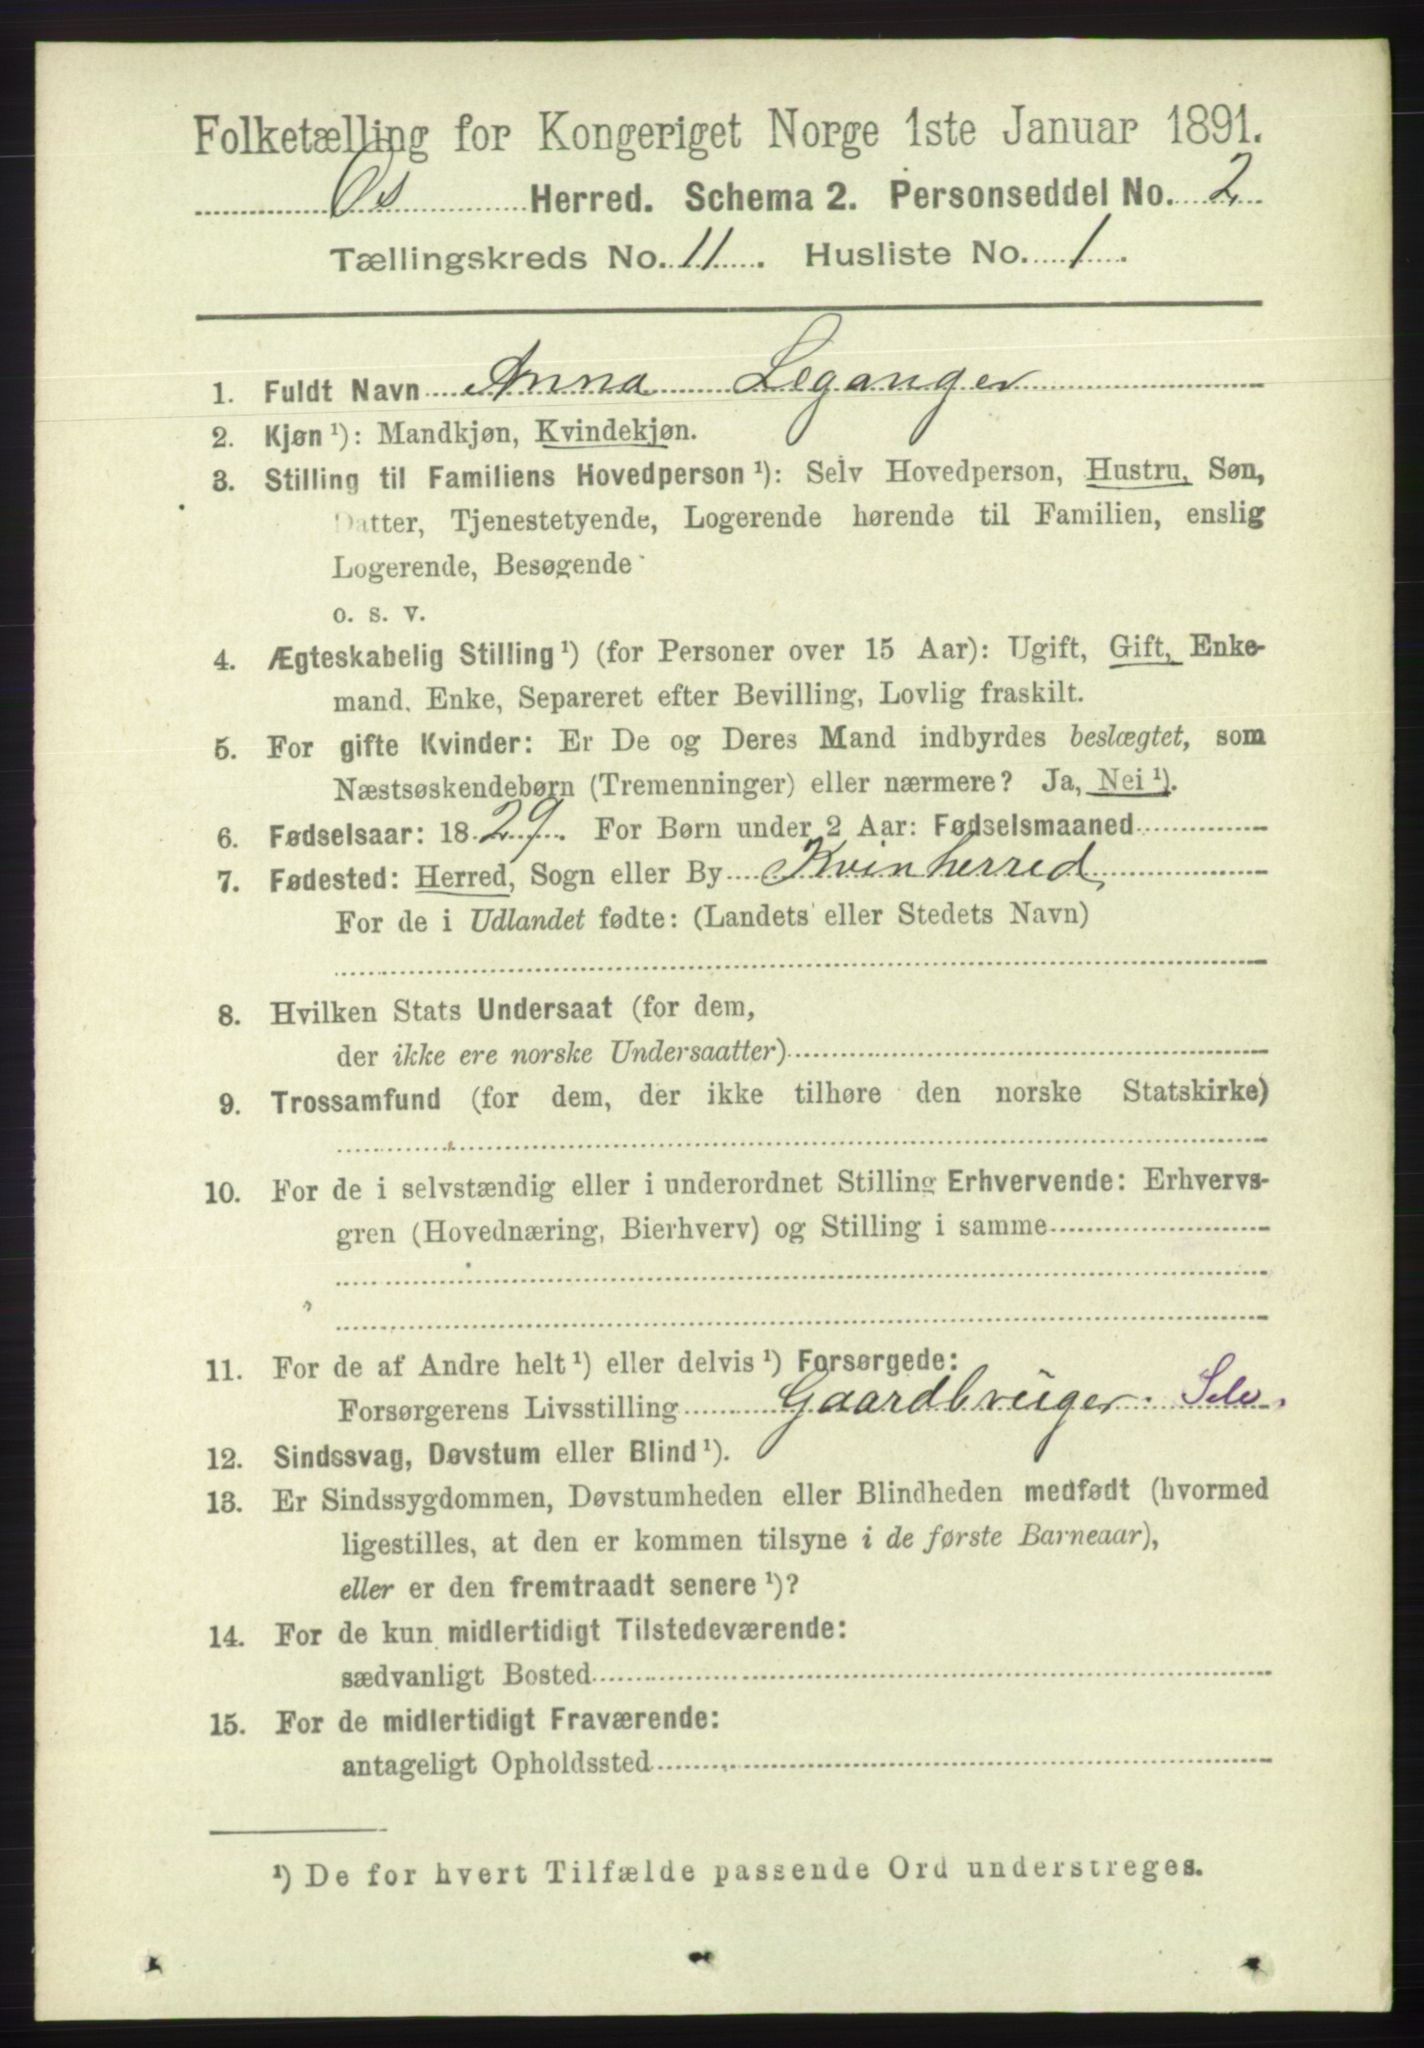 Folketælling for Kongeriget Norge 1ste Januar 1891.
Os Herred. Schema 2. Personseddel No. 2
Tællingskreds No. 11. Husliste No. 1.
1. Fuldt Navn Anna Leganger
2. Kjøn ¹): Mandkjøn, Kvindekjøn.
3. Stilling til Familiens Hovedperson ¹): Selv Hovedperson, Hustru, Søn,
Datter, Tjenestetyende, Logerende hørende til Familien, enslig
Logerende, Besøgende
o. s. v.
4. Ægteskabelig Stilling ¹) (for Personer over 15 Aar): Ugift, Gift, Enke-
mand, Enke, Separeret efter Bevilling, Lovlig fraskilt.
5. For gifte Kvinder: Er De og Deres Mand indbyrdes beslægtet, som
Næstsøskendebørn (Tremenninger) eller nærmere? Ja, Nei ¹).
6. Fødselsaar: 1829. For Børn under 2 Aar: Fødselsmaaned
7. Fødested: Herred, Sogn eller By Kvinherred
For de i Udlandet fødte: (Landets eller Stedets Navn)
8. Hvilken Stats Undersaat (for dem,
der ikke ere norske Undersaatter)
9. Trossamfund (for dem, der ikke tilhøre den norske Statskirke)
10. For de i selvstændig eller i underordnet Stilling Erhvervende: Erhvervs-
gren (Hovednæring, Bierhverv) og Stilling i samme
11. For de af Andre helt ¹) eller delvis ¹) Forsørgede:
Forsørgerens Livsstilling Gaardbruger. Selv.
12. Sindssvag, Døvstum eller Blind ¹).
13. Er Sindssygdommen, Døvstumheden eller Blindheden medfødt (hvormed
ligestilles, at den er kommen tilsyne i de første Barneaar),
eller er den fremtraadt senere ¹)?
14. For de kun midlertidigt Tilstedeværende:
sædvanligt Bosted
15. For de midlertidigt Fraværende:
antageligt Opholdssted
¹) De for hvert Tilfælde passende Ord understreges.